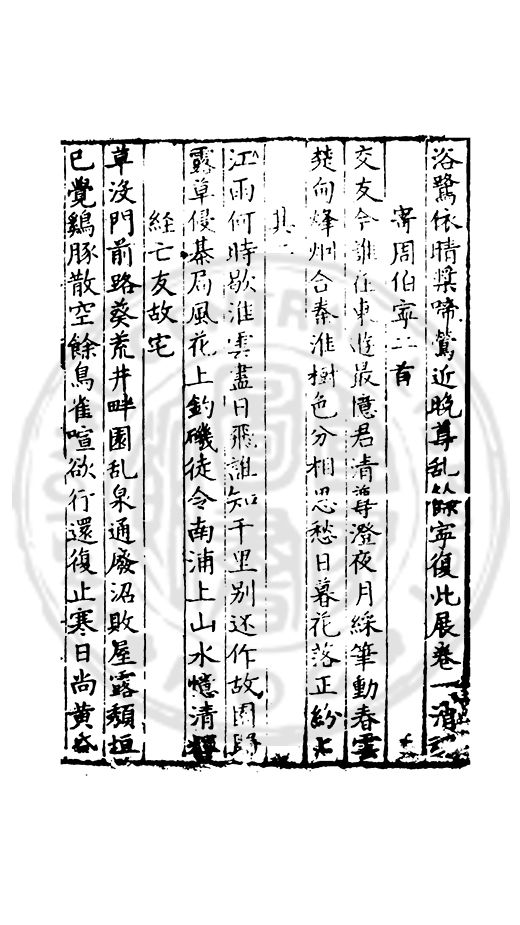 浴鷺依晴槳啼鶯近晚尊乱餘寧復此展卷一消
寄周伯寧二首
交友今誰在東遊最憶君清尊澄夜月綵筆動春雲
楚向烽烟合秦淮樹色分相思愁日暮花落正紛
其二
江雨何時歇淮雲盡日飛誰知千里别还作故園歸
露草侵棊局風花上釣磯徒令南浦上山水憶清
經亡友故宅
草没門前路葵荒井畔園乱泉通廢沼敗屋露頹垣
已覺鷄豚散空餘鳥雀喧欲行還復止寒日尚黄昏